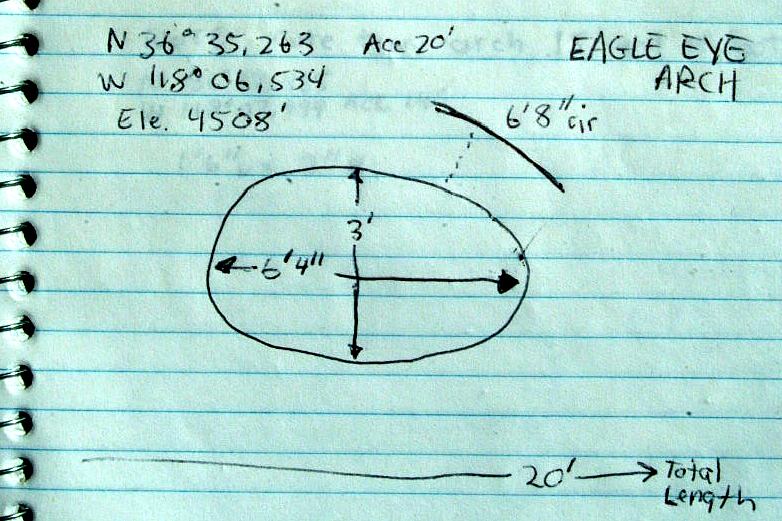 N 36° 35,263 Acc 20' EAGLE EYE
W 118° 06,534 ARCH
Ele. 4508' 6'8" cir
3'
6'4"
20' Total
Length